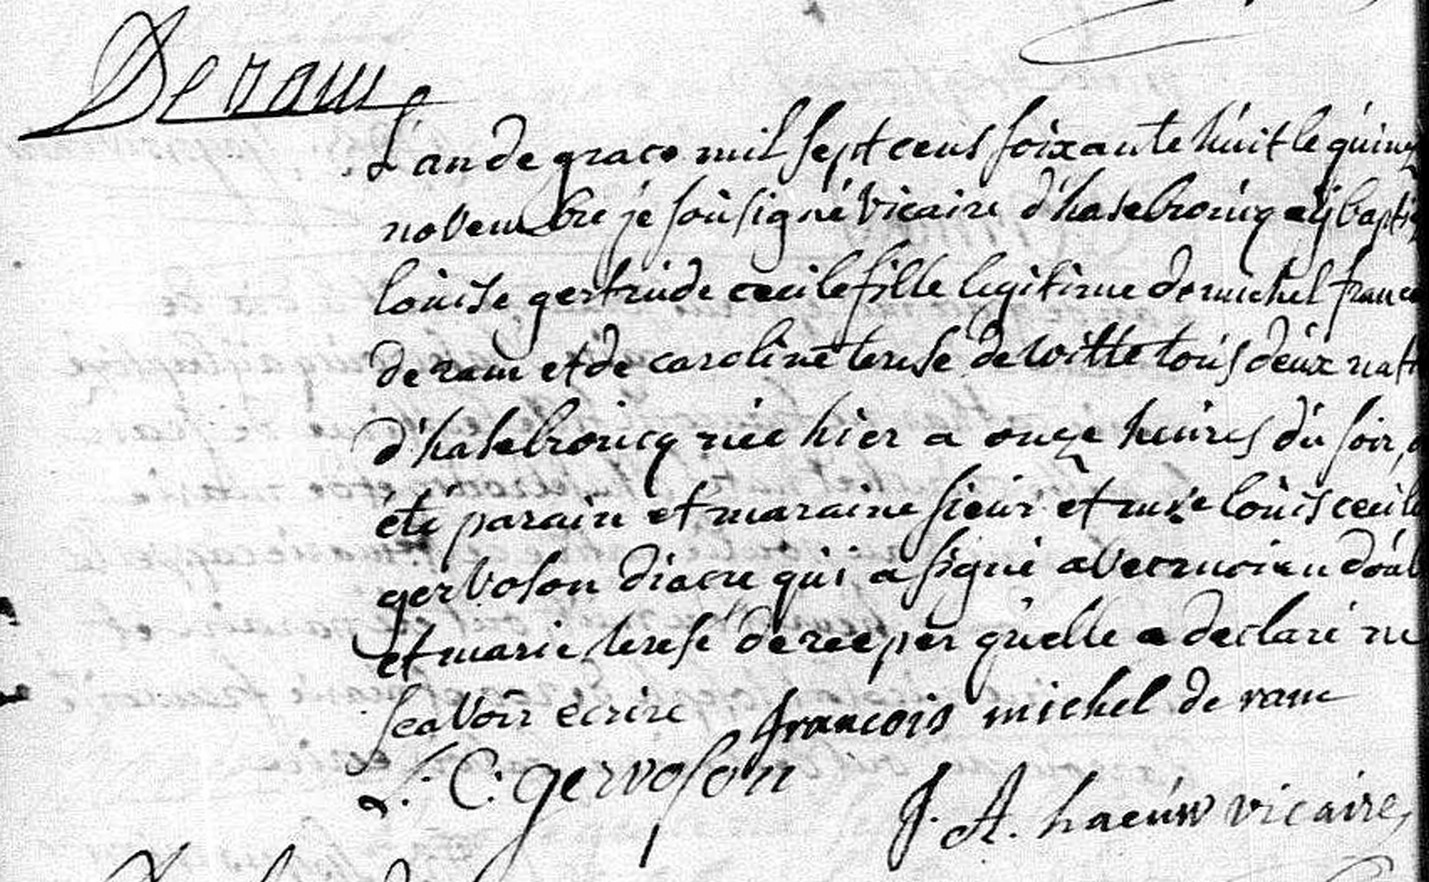 De ram
L'an de grace mil sept cens soixante huit le quinz
novembre je sousigné vicaire d'hasebroucq ay baptis
louise gertrude cecile fille legitime de michel franco
de ram et de caroline terese de witte tous deux natif
d'hasebroucq née hier a onze heures du soir,
eté parain et maraine sieur et louis cecile
gervoson diacre qui a signé avec moi
et marie terese de reeper qu'elle a declaré ne
scavoir ecrire françois michel de ram
L. C. gervoson
J. A. haeuw vicaire